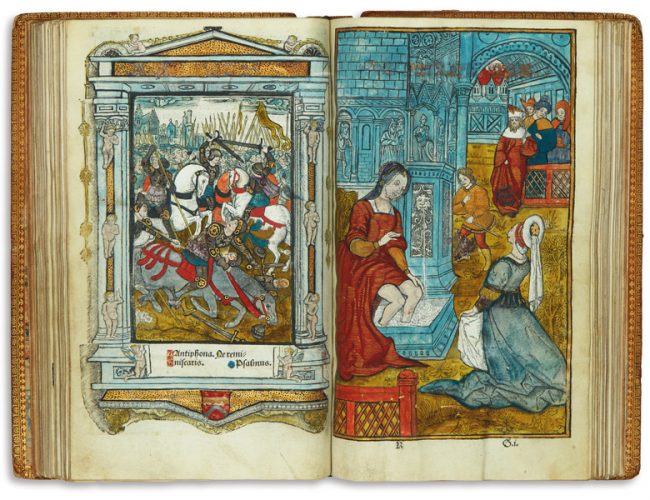 Antiphona. Ne remi-
niscaris. Psalmus.
R G.i.